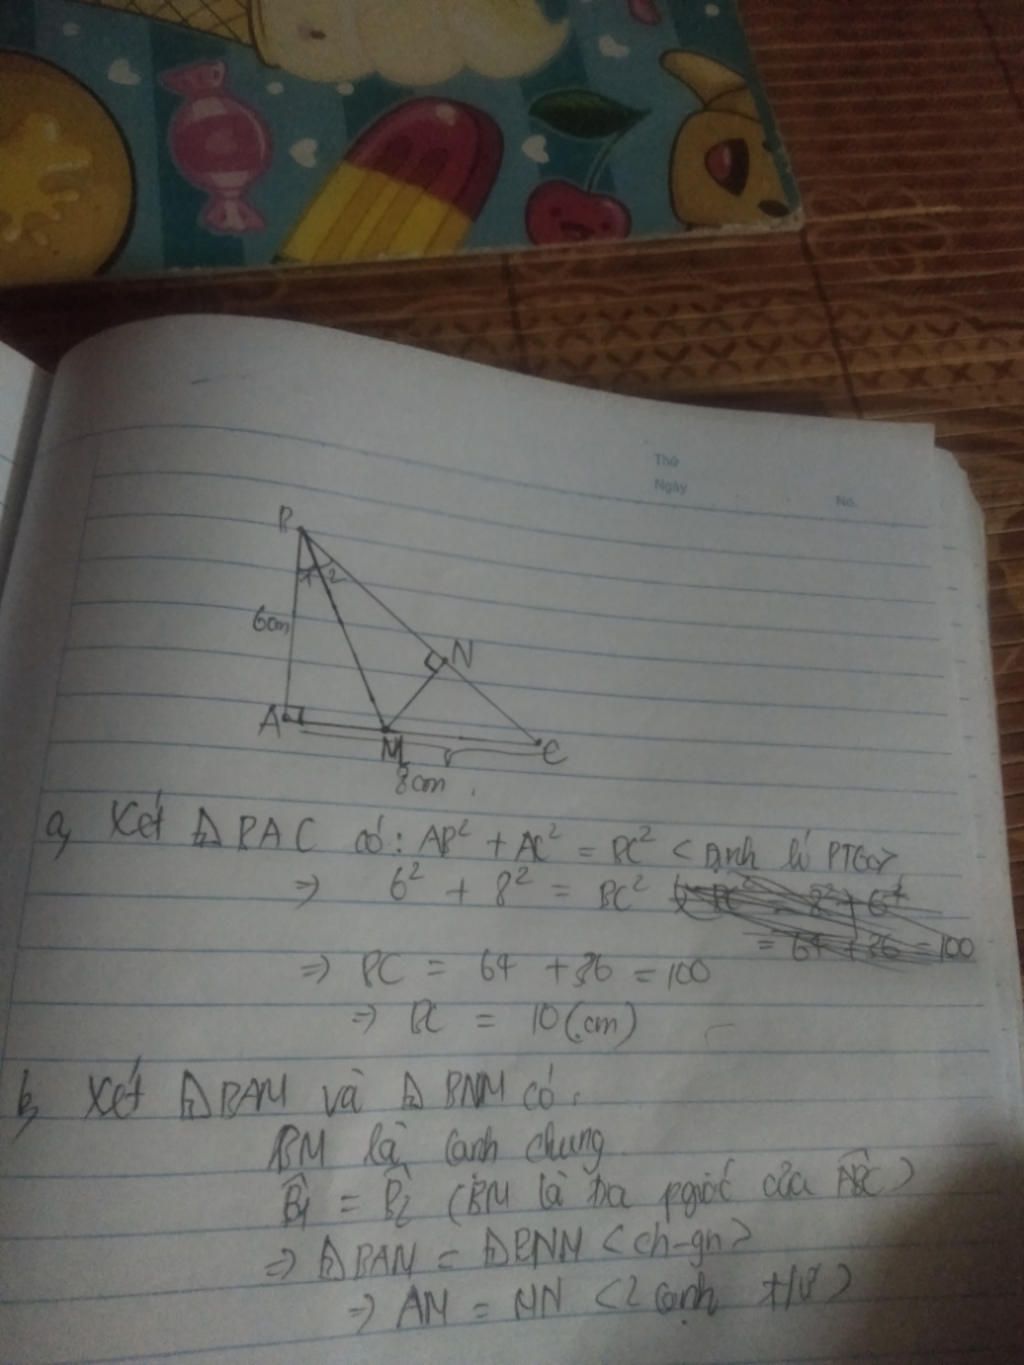 Thứ
Ngày
No.
B
1 2
6cm
N
A
M
C
8cm
a, Xét △BAC có: AB² + AC² = BC² < Định lí PTGO>
=> 6² + 8² = BC²
= 64 + 36 = 100
=> BC = 64 + 36 = 100
=> BC = 10 (cm)
b, Xét △BAM và △BNM có:
BM là cạnh chung
B̂1 = B̂2 (BM là tia pgiác của ABC)
=> △BAM = △BNM <ch-gn>
=> AM = MN <2 cạnh t/ư>